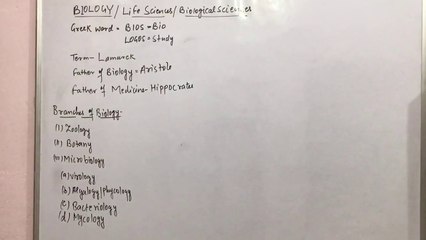 BIOLOGY/Life Sciences/Biological sciences
Greek word = BIOS = Bio
LOGOS = Study
Term- Lamarck
Father of Biology = Aristole
Father of Medicine- Hippocrates
Branches of Biology:-
(I) Zoology
(II) Botany
(III) Microbiology
(a) Virology
(b) Algology/Phycology
(c) Bacteriology
(d) Mycology